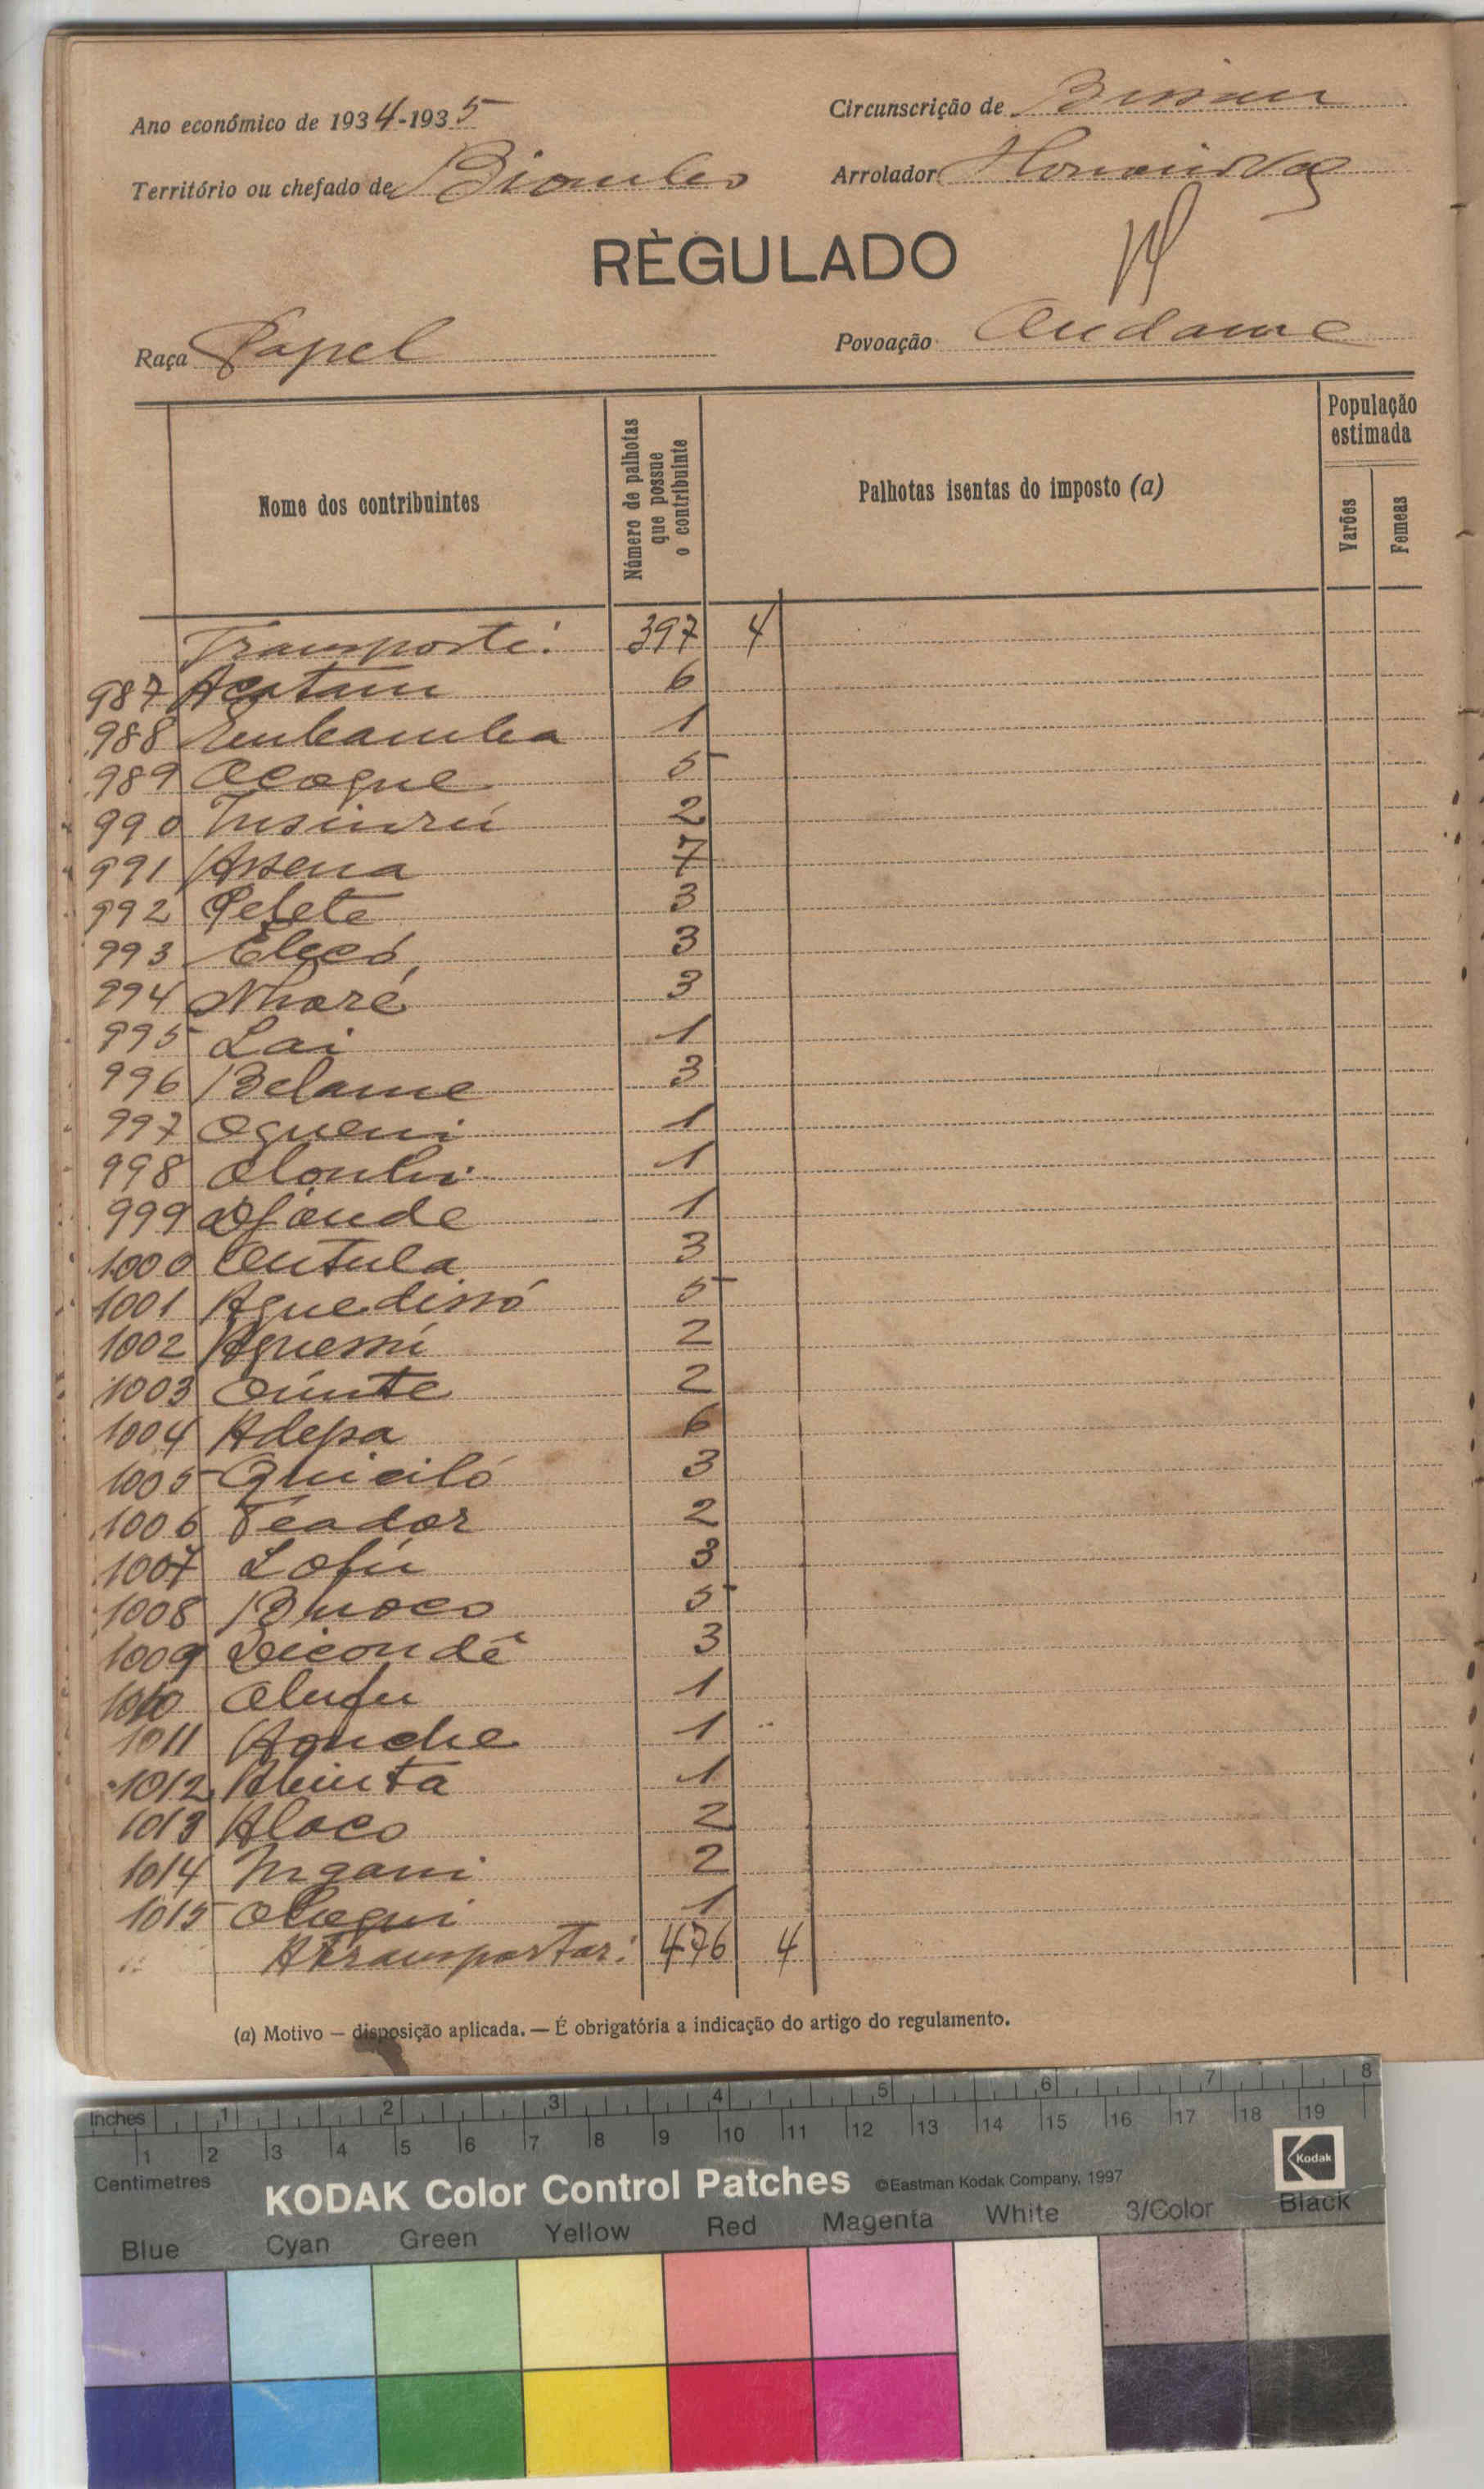 Ano económico de 1934-1935
Circunscrição de Bissau
Território ou chefado de Biombo
Arrolador
RÈGULADO
Raça Papel
Povoação Andame
Nome dos contribuintes
Número de palhotas que possue o contribuinte
Palhotas isentas do imposto (a)
População estimada
Varões
Femeas
Transporte: 397 4
987 Acatam 6
988 Embamba 1
989 Ocogue 5
990 Insinré 2
991 Assena 7
992 Pelete 3
993 Elecó 3
994 Nharé 3
995 Lai 1
996 Belame 3
997 Ogueni 1
998 Olonhi 1
999 Djonde 1
1000 Centula 3
1001 Aguedissó 5
1002 Aguessi 2
1003 Ointe 2
1004 Adepa 6
1005 Quiciló 3
1006 Teador 2
1007 Lofu 3
1008 Binoco 5
1009 Dicondê 3
1010 Olufu 1
1011 Honche 1
1012 Abinta 1
1013 Aloco 2
1014 Ingani 2
1015 1
A transportar: 476 4
(a) Motivo — disposição aplicada. — É obrigatória a indicação do artigo do regulamento.
Inches 1 2 3 4 5 6 7 8
1 2 3 4 5 6 7 8 9 10 11 12 13 14 15 16 17 18 19
Centimetres
KODAK Color Control Patches ©Eastman Kodak Company, 1997
Kodak
Blue Cyan Green Yellow Red Magenta White 3/Color Black